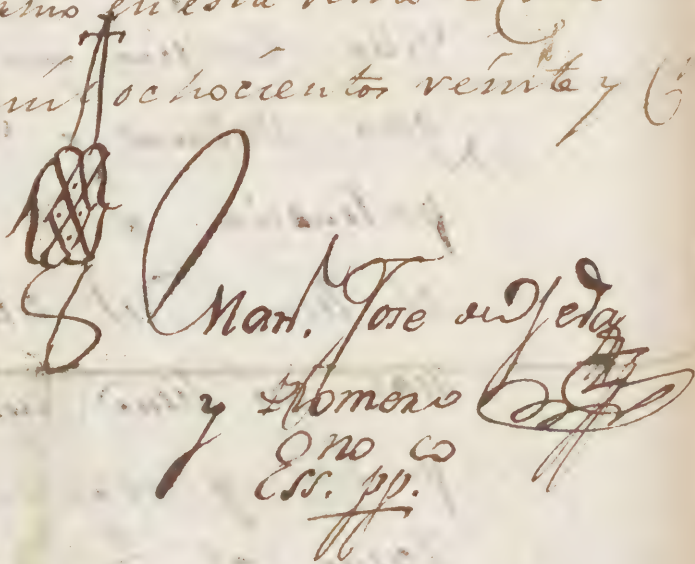 en esta
mil ochocientos veinte y
Man. Jose de Ojeda
y Romero
Ess. pp.